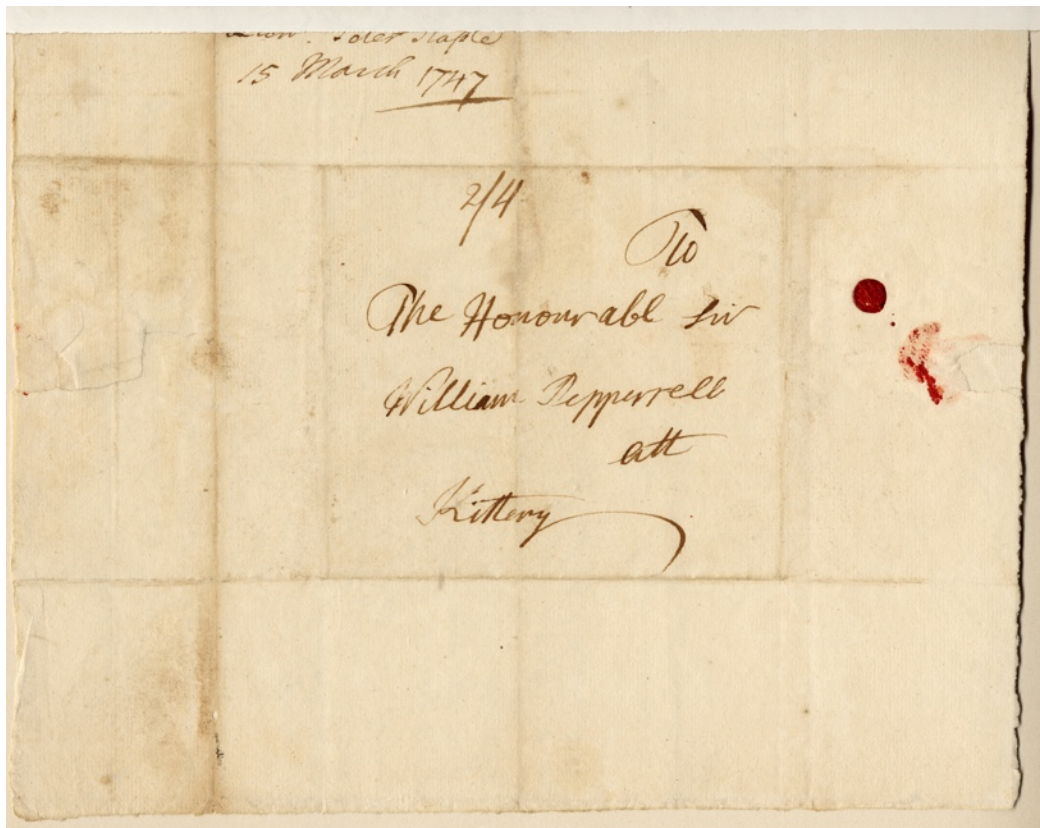 Peter Staple
15 March 1747
2/4
To
The Honourabl Sir
William Pepperrell
att
Kittery